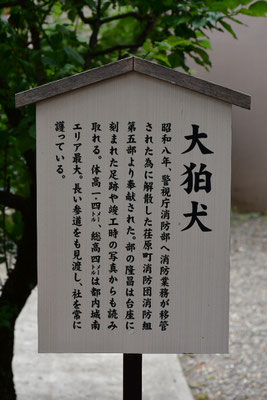 大狛犬
昭和八年、警視庁消防部へ消防業務が移管
された為に解散した荏原町消防団消防組
第五部より奉献された。部の隆昌は台座に
刻まれた足跡や竣工時の写真からも読み
取れる。体高一・四㍍、総高四㍍は都内城南
エリア最大。長い参道をも見渡し、社を常に
護っている。